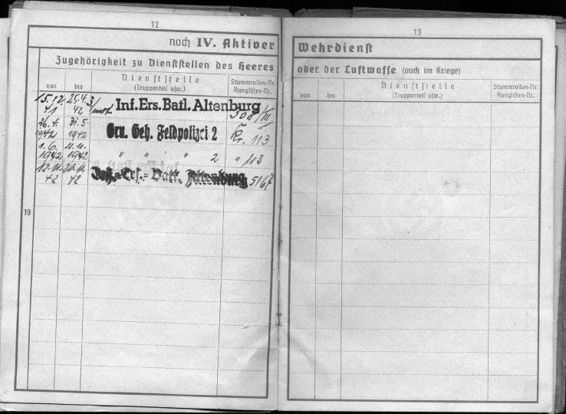 12
noch IV. Aktiver
Zugehörigkeit zu Dienststellen des Heeres
von
bis
Dienststelle
(Truppenteil usw.)
Stammrollen-Nr.
Ranglisten-Nr.
15.12.
41
25.4.
42
Inf. Ers. Batl. Altenburg
308/III
26.4.
1942
31.5.
1942
Gru. Geh. Feldpolizei 2
Kr. 113
1.6.
1942
11.11.
1942
" " " 2
" 113
12.11.
42
42
Inf.-Ers.-Batl. Altenburg
5167
19
13
Wehrdienst
oder der Luftwaffe (auch im Kriege)
von
bis
Dienststelle
(Truppenteil usw.)
Stammrollen-Nr.
Ranglisten-Nr.